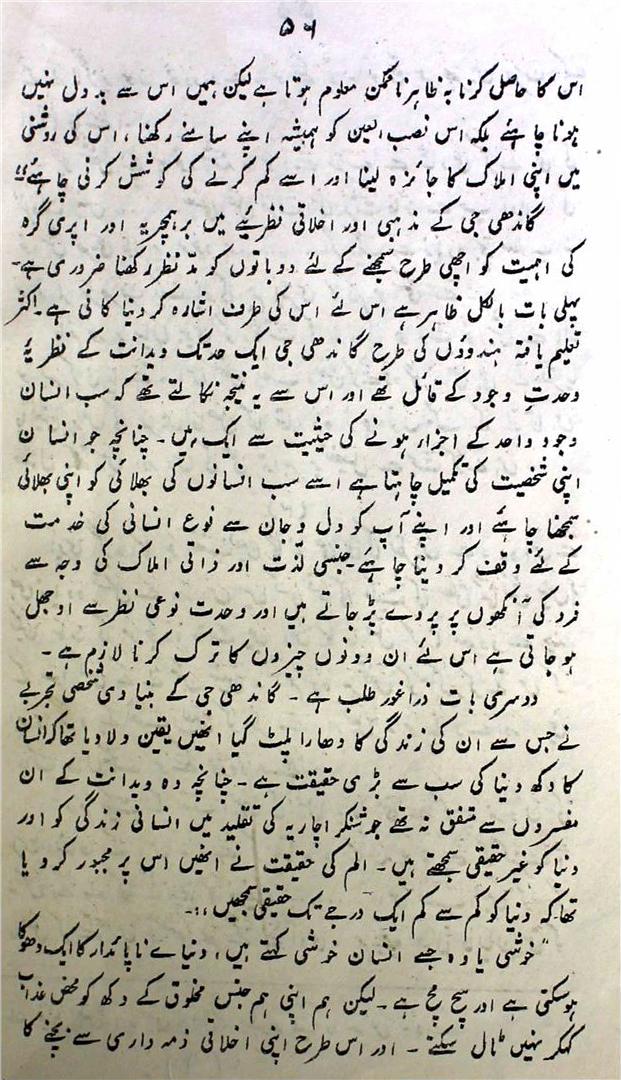 ۵۶
اس کا حاصل کرنا بہ ظاہر ناممکن معلوم ہوتا ہے لیکن ہمیں اس سے بد دل نہیں
ہونا چاہئے بلکہ اس نصب العین کو ہمیشہ اپنے سامنے رکھنا، اس کی روشنی
میں اپنی املاک کا جائزہ لینا اور اسے کم کرنے کی کوشش کرنی چاہئے"
گاندھی جی کے مذہبی اور اخلاقی نظریے میں برہمچریہ اور اپری گرہ
کی اہمیت کو اچھی طرح سمجھنے کے لئے دو باتوں کو مدِّ نظر رکھنا ضروری ہے۔
پہلی بات بالکل ظاہر ہے اس لئے اس کی طرف اشارہ کر دینا کافی ہے۔ اکثر
تعلیم یافتہ ہندوؤں کی طرح گاندھی جی ایک حد تک ویدانت کے نظریۂ
وحدتِ وجود کے قائل تھے اور اس سے یہ نتیجہ نکالتے تھے کہ سب انسان
وجود واحد کے اجزار ہونے کی حیثیت سے ایک ہیں۔ چنانچہ جو انسان
اپنی شخصیت کی تکمیل چاہتا ہے اسے سب انسانوں کی بھلائی کو اپنی بھلائی
سمجھنا چاہئے اور اپنے آپ کو دل و جان سے نوع انسانی کی خدمت
کے لئے وقف کر دینا چاہئے۔ جنسی لذّت اور ذاتی املاک کی وجہ سے
فرد کی آنکھوں پر پردے پڑ جاتے ہیں اور وحدت نوعی نظر سے اوجھل
ہو جاتی ہے اس لئے ان دونوں چیزوں کا ترک کرنا لازم ہے۔
دوسری بات ذرا غور طلب ہے۔ گاندھی جی کے بنیادی شخصی تجربے
نے جس سے ان کی زندگی کا دھارا پلٹ گیا انھیں یقین دلا دیا تھا کہ انسان
کا دکھ دنیا کی سب سے بڑی حقیقت ہے۔ چنانچہ وہ ویدانت کے ان
مفسروں سے متفق نہ تھے جو شنکر اچاریہ کی تقلید میں انسانی زندگی کو اور
دنیا کو غیر حقیقی سمجھتے ہیں۔ الم کی حقیقت نے انھیں اس پر مجبور کر دیا
تھا کہ دنیا کو کم سے کم ایک درجے تک حقیقی سمجھیں:۔
"خوشی یا وہ جسے انسان خوشی کہتے ہیں، دنیاے ناپائدار کا ایک دھوکا
ہو سکتی ہے اور سچ مچ ہے۔ لیکن ہم اپنی ہم جنس مخلوق کے دکھ کو محض عذاب
کہکر نہیں ٹال سکتے۔ اور اس طرح اپنی اخلاقی ذمہ داری سے بچنے کا